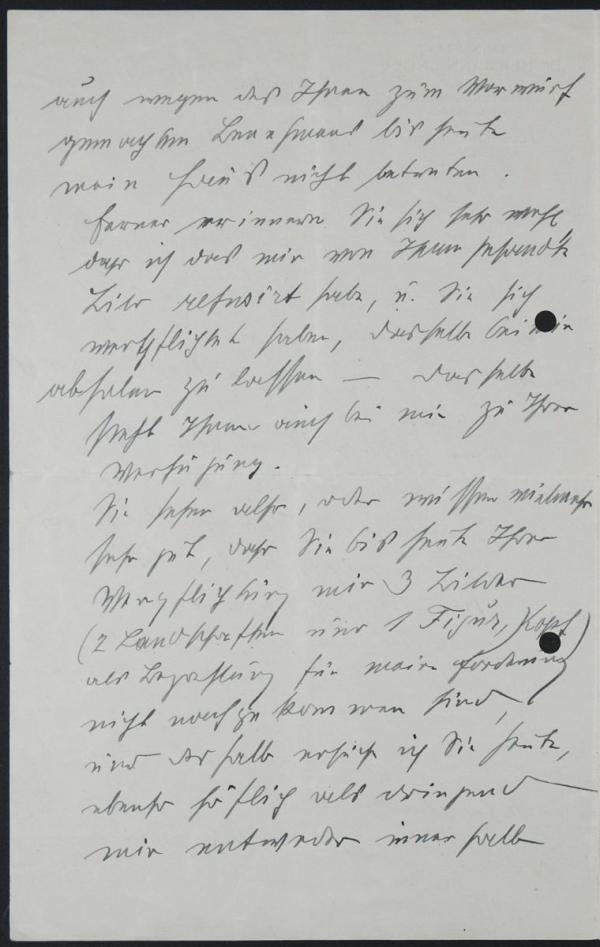 auch wegen des Ihnen zum Vorwurf
gemachten Benehmens bis heute
mein Haus nicht betreten.
Ferner erinnern Sie sich sehr wohl,
dass ich das mir von Ihnen gesandte
Bild refusirt habe, u. Sie sich
verpflichtet haben, dasselbe bei mir
abholen zu lassen — dasselbe
steht Ihnen auch bei mir zu Ihrer
Verfügung.
Sie sehen also, oder wissen vielmehr
sehr gut, dass Sie bis heute Ihrer
Verpflichtung mir 3 Bilder
(2 Landschaften und 1 Figur, Kopf)
als Bezahlung für meine Forderung
nicht nachgekommen sind,
und deshalb ersuche ich Sie heute,
ebenso höflich als dringend
mir entweder innerhalb